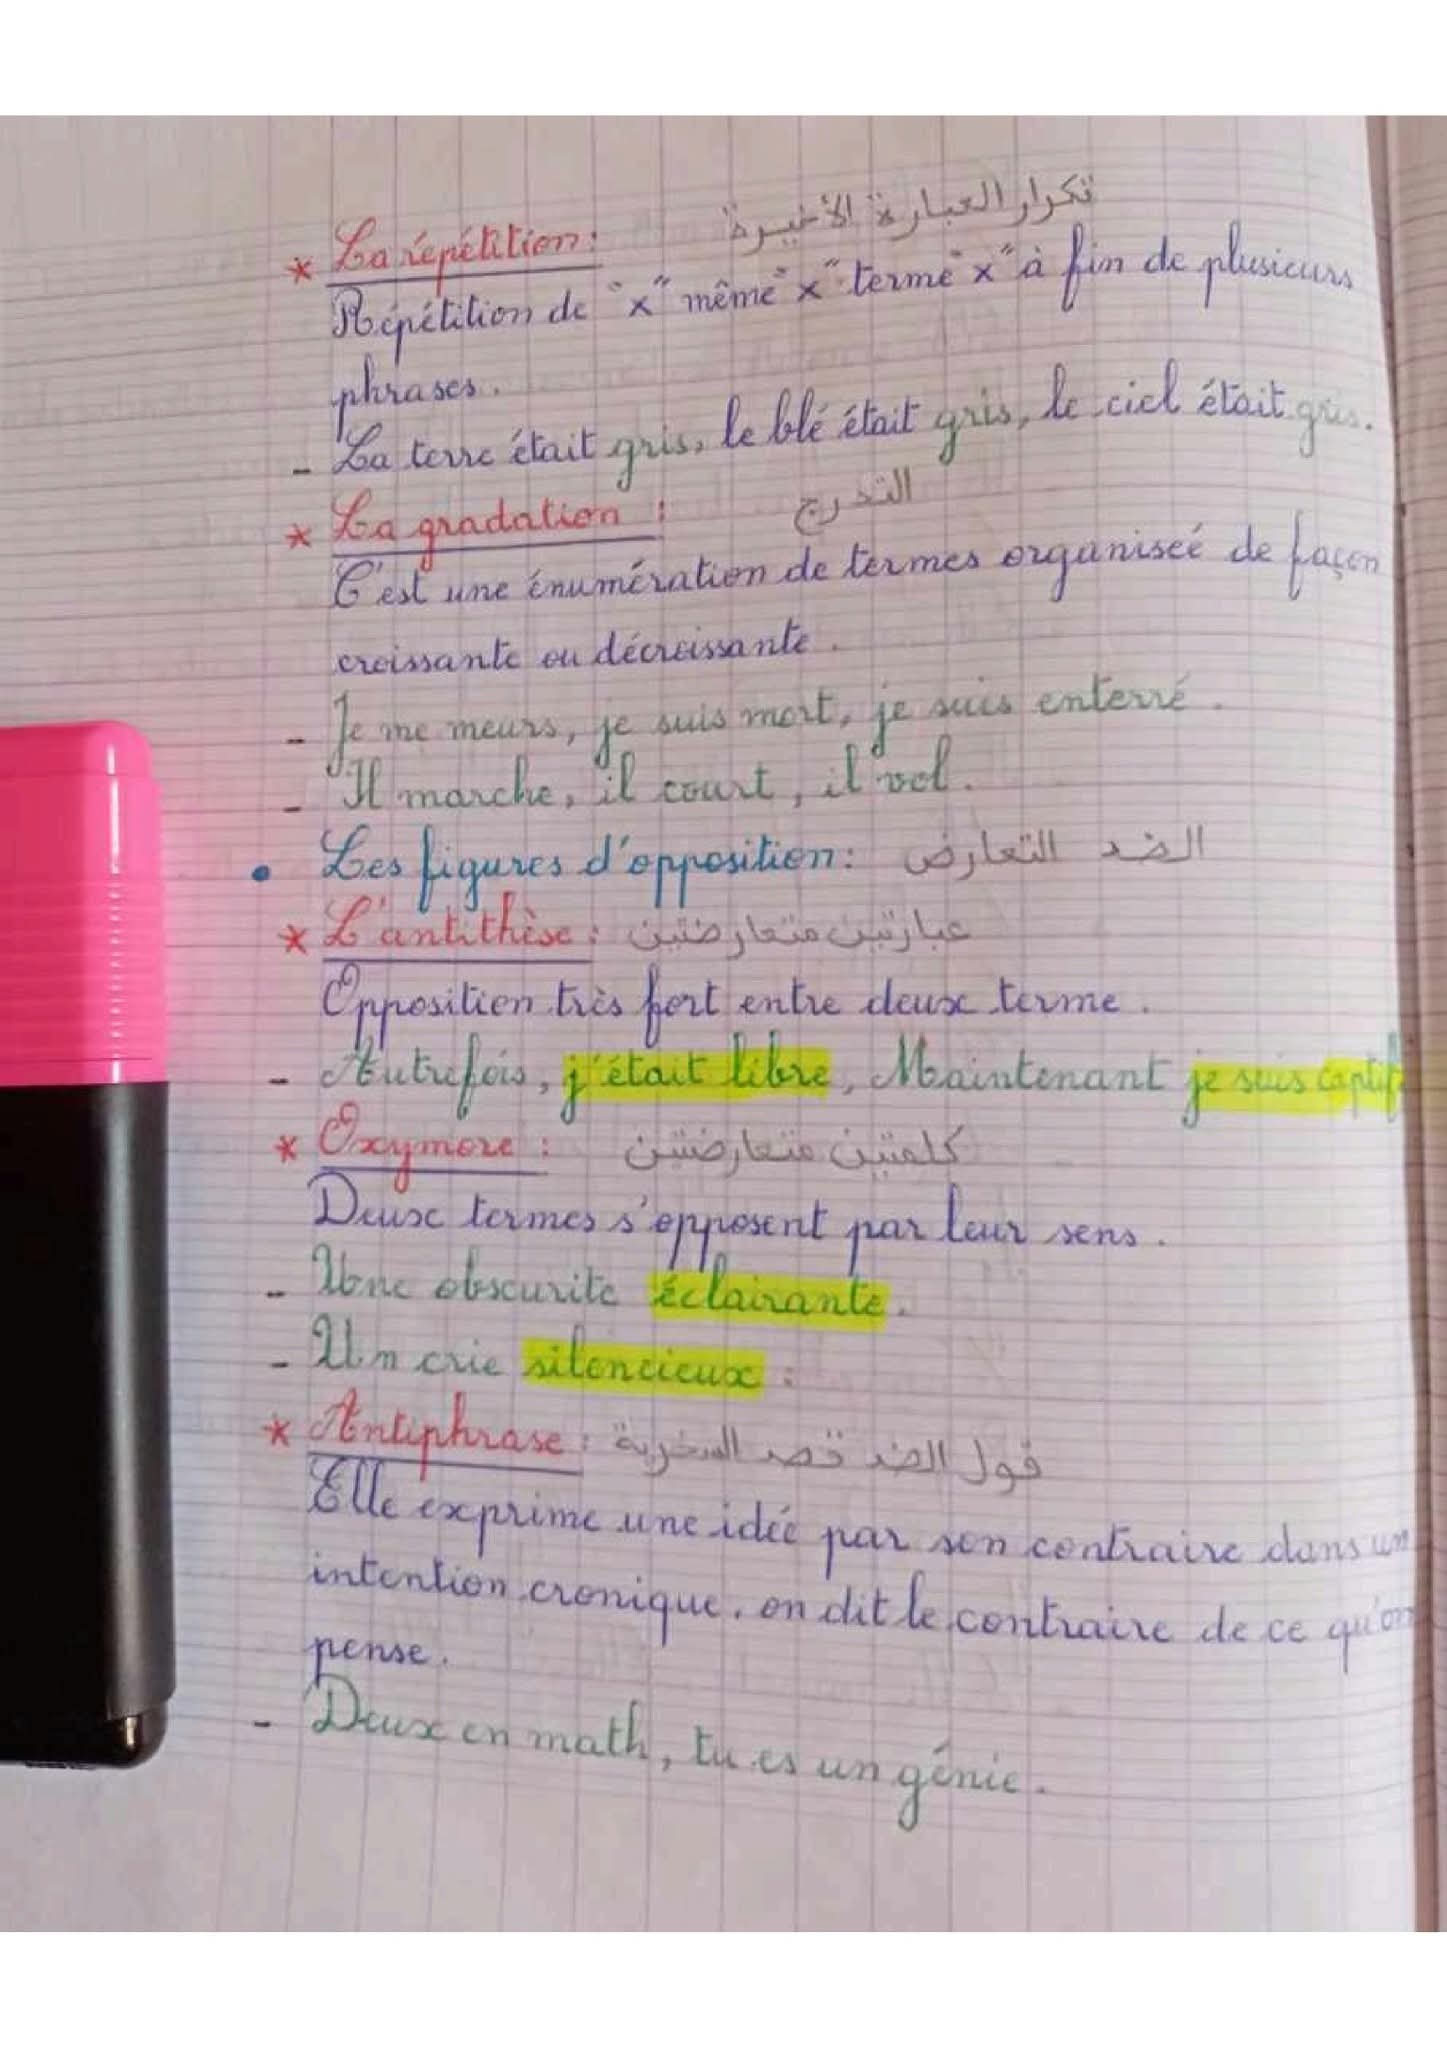 تكرار العبارة الأخيرة
* La répétition:
Répétition de "x" même "x" terme "x" à fin de plusieurs
phrases.
- La terre était gris, le blé était gris, le ciel était gris.
* La gradation : التدرج
C'est une énumération de termes organiseé de façon
croissante ou décroissante.
- Je me meurs, je suis mort, je suis enterré.
- Il marche, il court, il vol.
• Les figures d'opposition: الضد التعارض
* L'antithèse : عبارتين متعارضتين
Opposition très fort entre deux terme.
- Autrefois, j'était libre, Maintenant je suis captif
* Oxymore : كلمتين متعارضتين
Deux termes s'opposent par leur sens.
- Une obscurite éclairante.
- Un crie silencieux :
* Antiphrase : قول الضد قصد السخرية
Elle exprime une idée par son contraire dans un
intention cronique. on dit le contraire de ce qu'on
pense.
- Deux en math, tu es un génie.